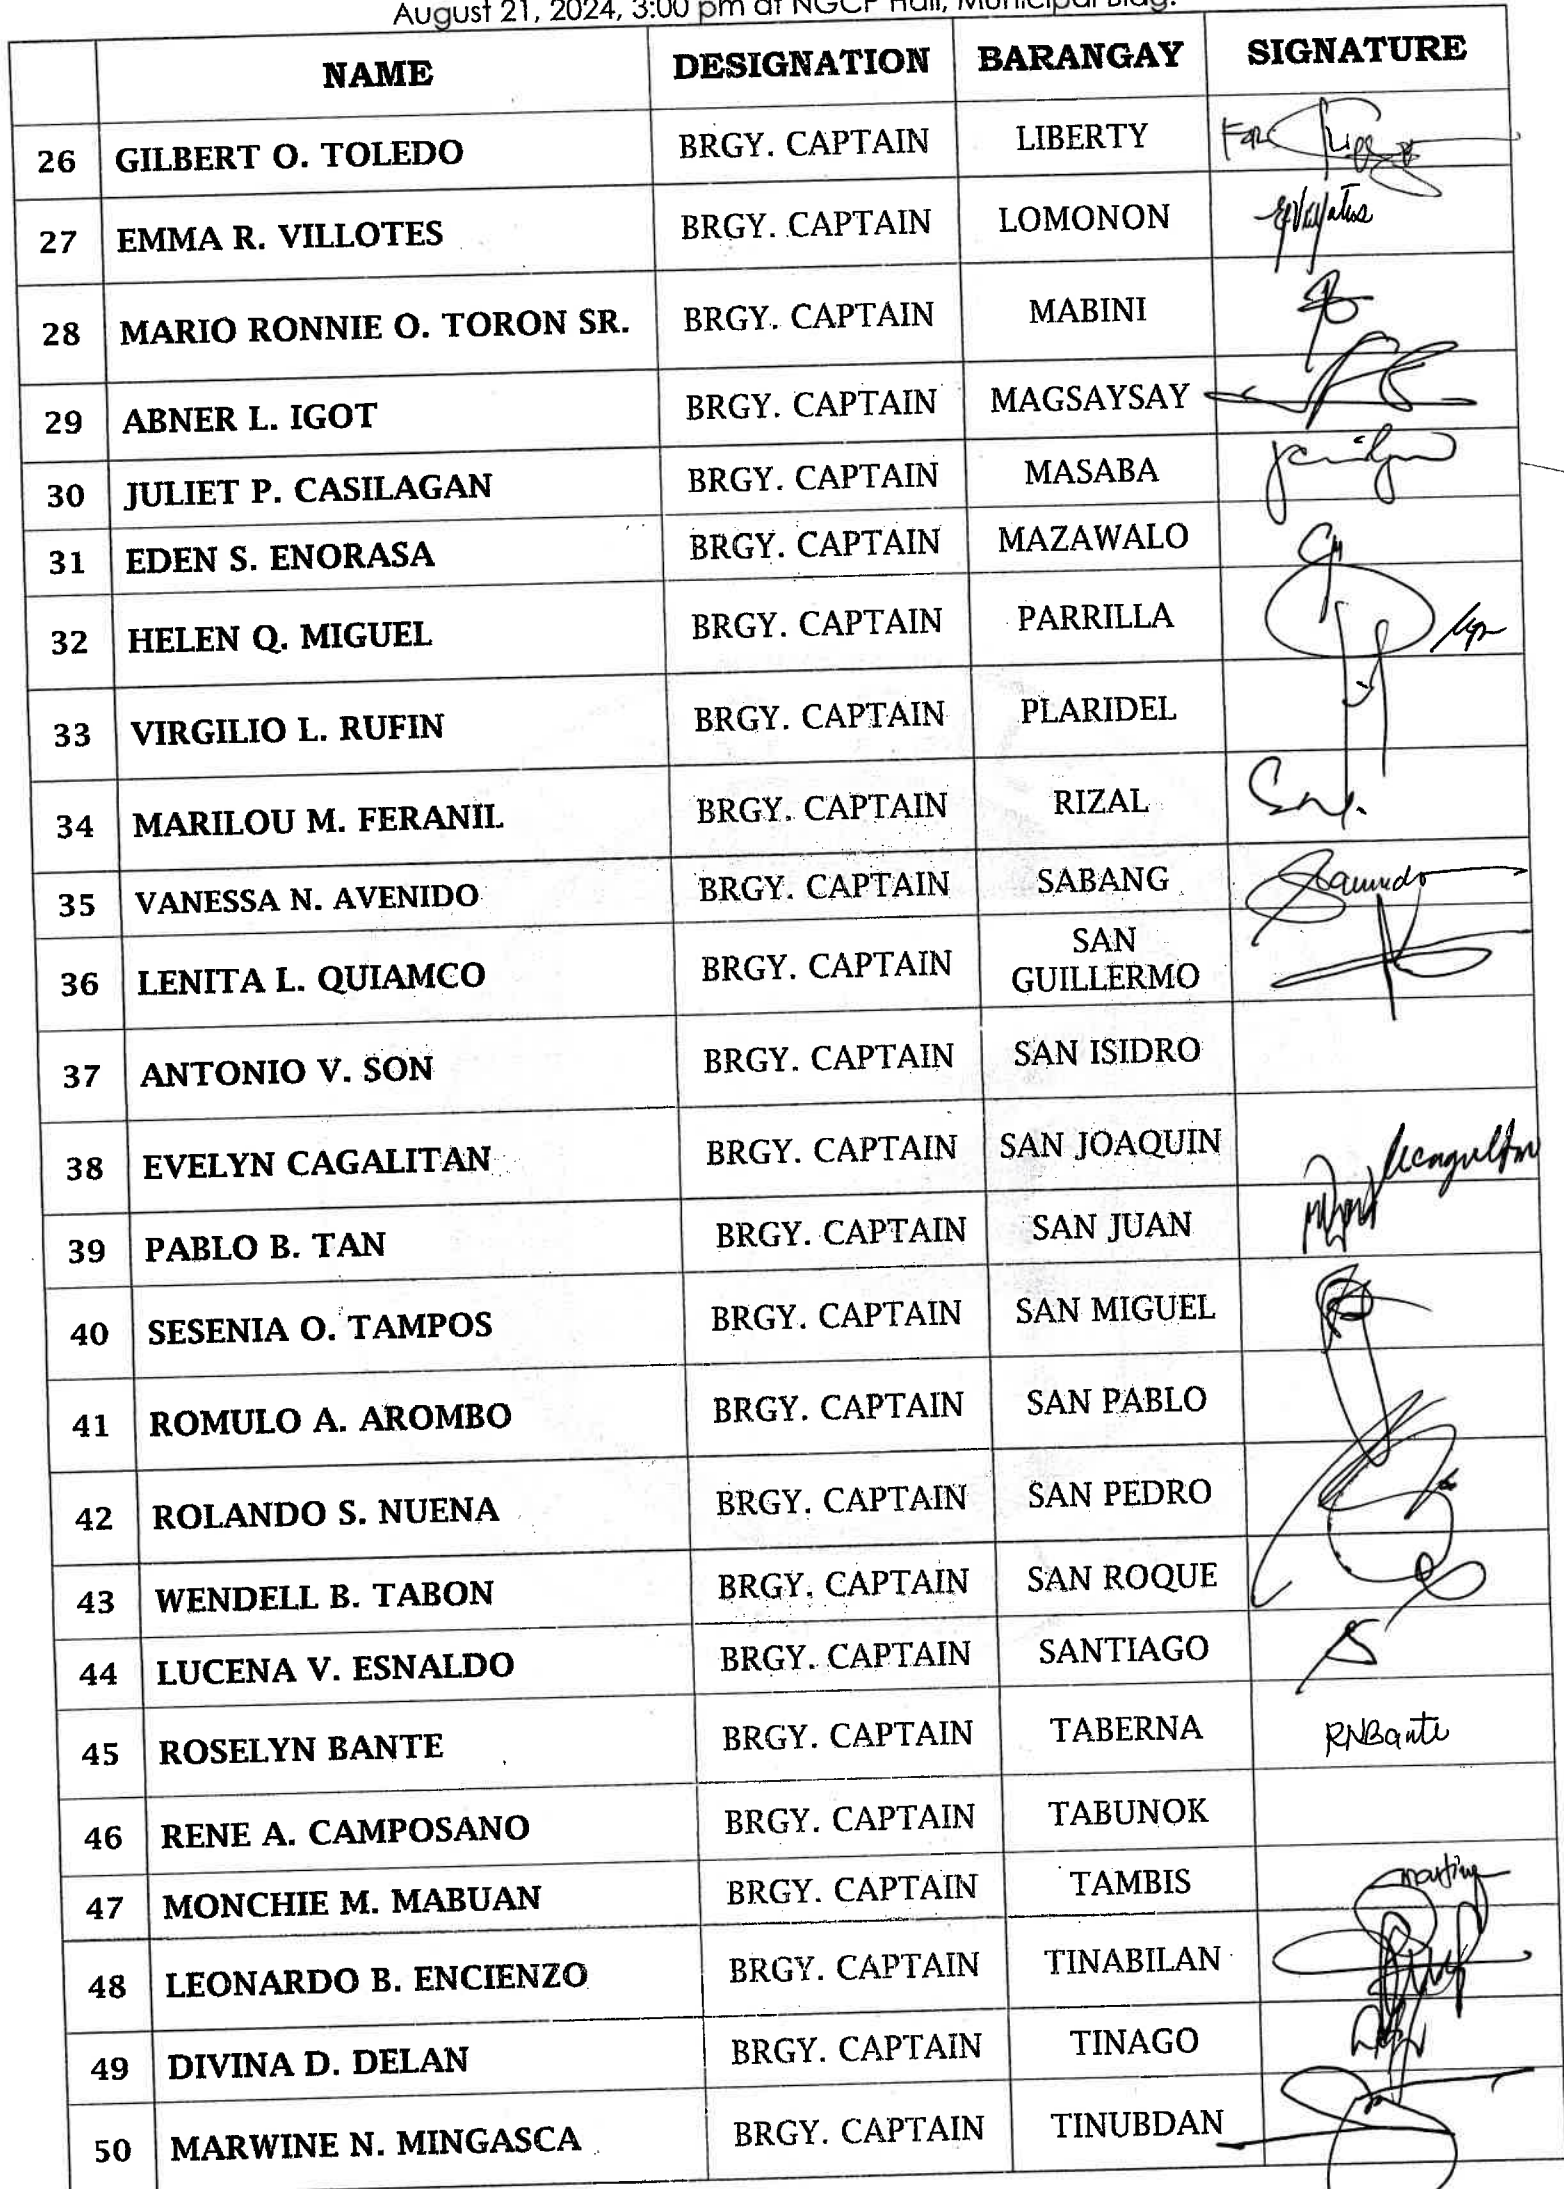 August 21, 2024, 3:00 pm at NGCP Hall, Municipal Bldg.
NAME DESIGNATION BARANGAY SIGNATURE
26 GILBERT O. TOLEDO BRGY. CAPTAIN LIBERTY For
27 EMMA R. VILLOTES BRGY. CAPTAIN LOMONON
28 MARIO RONNIE O. TORON SR. BRGY. CAPTAIN MABINI
29 ABNER L. IGOT BRGY. CAPTAIN MAGSAYSAY
30 JULIET P. CASILAGAN BRGY. CAPTAIN MASABA
31 EDEN S. ENORASA BRGY. CAPTAIN MAZAWALO
32 HELEN Q. MIGUEL BRGY. CAPTAIN PARRILLA
33 VIRGILIO L. RUFIN BRGY. CAPTAIN PLARIDEL
34 MARILOU M. FERANIL BRGY. CAPTAIN RIZAL
35 VANESSA N. AVENIDO BRGY. CAPTAIN SABANG
36 LENITA L. QUIAMCO BRGY. CAPTAIN SAN
GUILLERMO
37 ANTONIO V. SON BRGY. CAPTAIN SAN ISIDRO
38 EVELYN CAGALITAN BRGY. CAPTAIN SAN JOAQUIN
39 PABLO B. TAN BRGY. CAPTAIN SAN JUAN
40 SESENIA O. TAMPOS BRGY. CAPTAIN SAN MIGUEL
41 ROMULO A. AROMBO BRGY. CAPTAIN SAN PABLO
42 ROLANDO S. NUENA BRGY. CAPTAIN SAN PEDRO
43 WENDELL B. TABON BRGY. CAPTAIN SAN ROQUE
44 LUCENA V. ESNALDO BRGY. CAPTAIN SANTIAGO
45 ROSELYN BANTE BRGY. CAPTAIN TABERNA RNBante
46 RENE A. CAMPOSANO BRGY. CAPTAIN TABUNOK
47 MONCHIE M. MABUAN BRGY. CAPTAIN TAMBIS
48 LEONARDO B. ENCIENZO BRGY. CAPTAIN TINABILAN
49 DIVINA D. DELAN BRGY. CAPTAIN TINAGO
50 MARWINE N. MINGASCA BRGY. CAPTAIN TINUBDAN